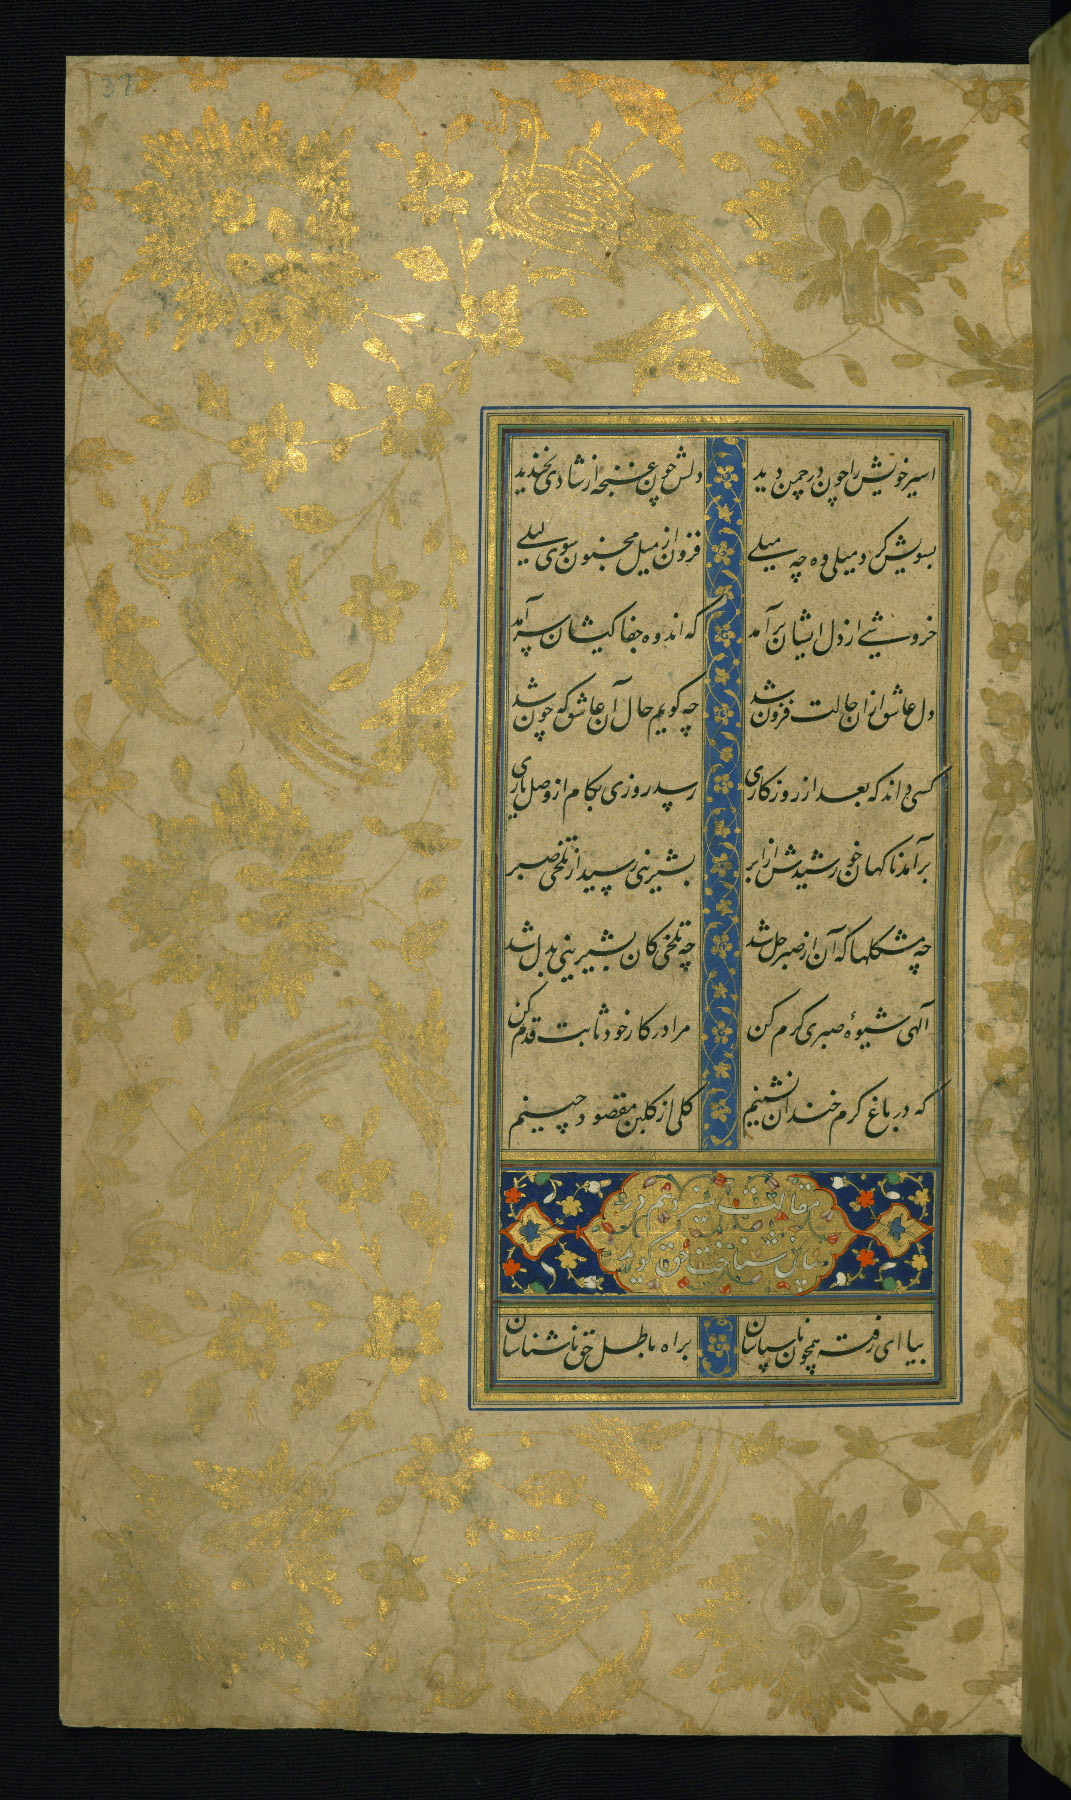 اسیر خویش را چون در چمن دید دلش چون غنچه از شادی بخندید
بسویش کرد میلی وه چه میلی فزون از میل مجنون سوی لیلی
خروشی از دل ایشان برآمد که اندوه جفاکیشان سرآمد
دل عاشق ازان حالت فزون شد چه گویم حال آن عاشق که چون شد
کسی داند که بعد از روزکاری رسد روزی بکام از وصل یاری
برآمد ناکهان خورشیدش از ابر بشیرینی رسید از تلخی صبر
چه مشکلها که آن از صبر حل شد چه تلخی کان بشیرینی بدل شد
آلهی شیوهٔ صبری کرم کن مرا در کار خود ثابت قدم کن
که در باغ کرم خندان نشینم کلی از کلبن مقصود چینم
مقالت سیزدهم در
بیان شناخت حق کوید
بیا ای رفته همچون ناسپاسان براه باطل حق ناشناسان